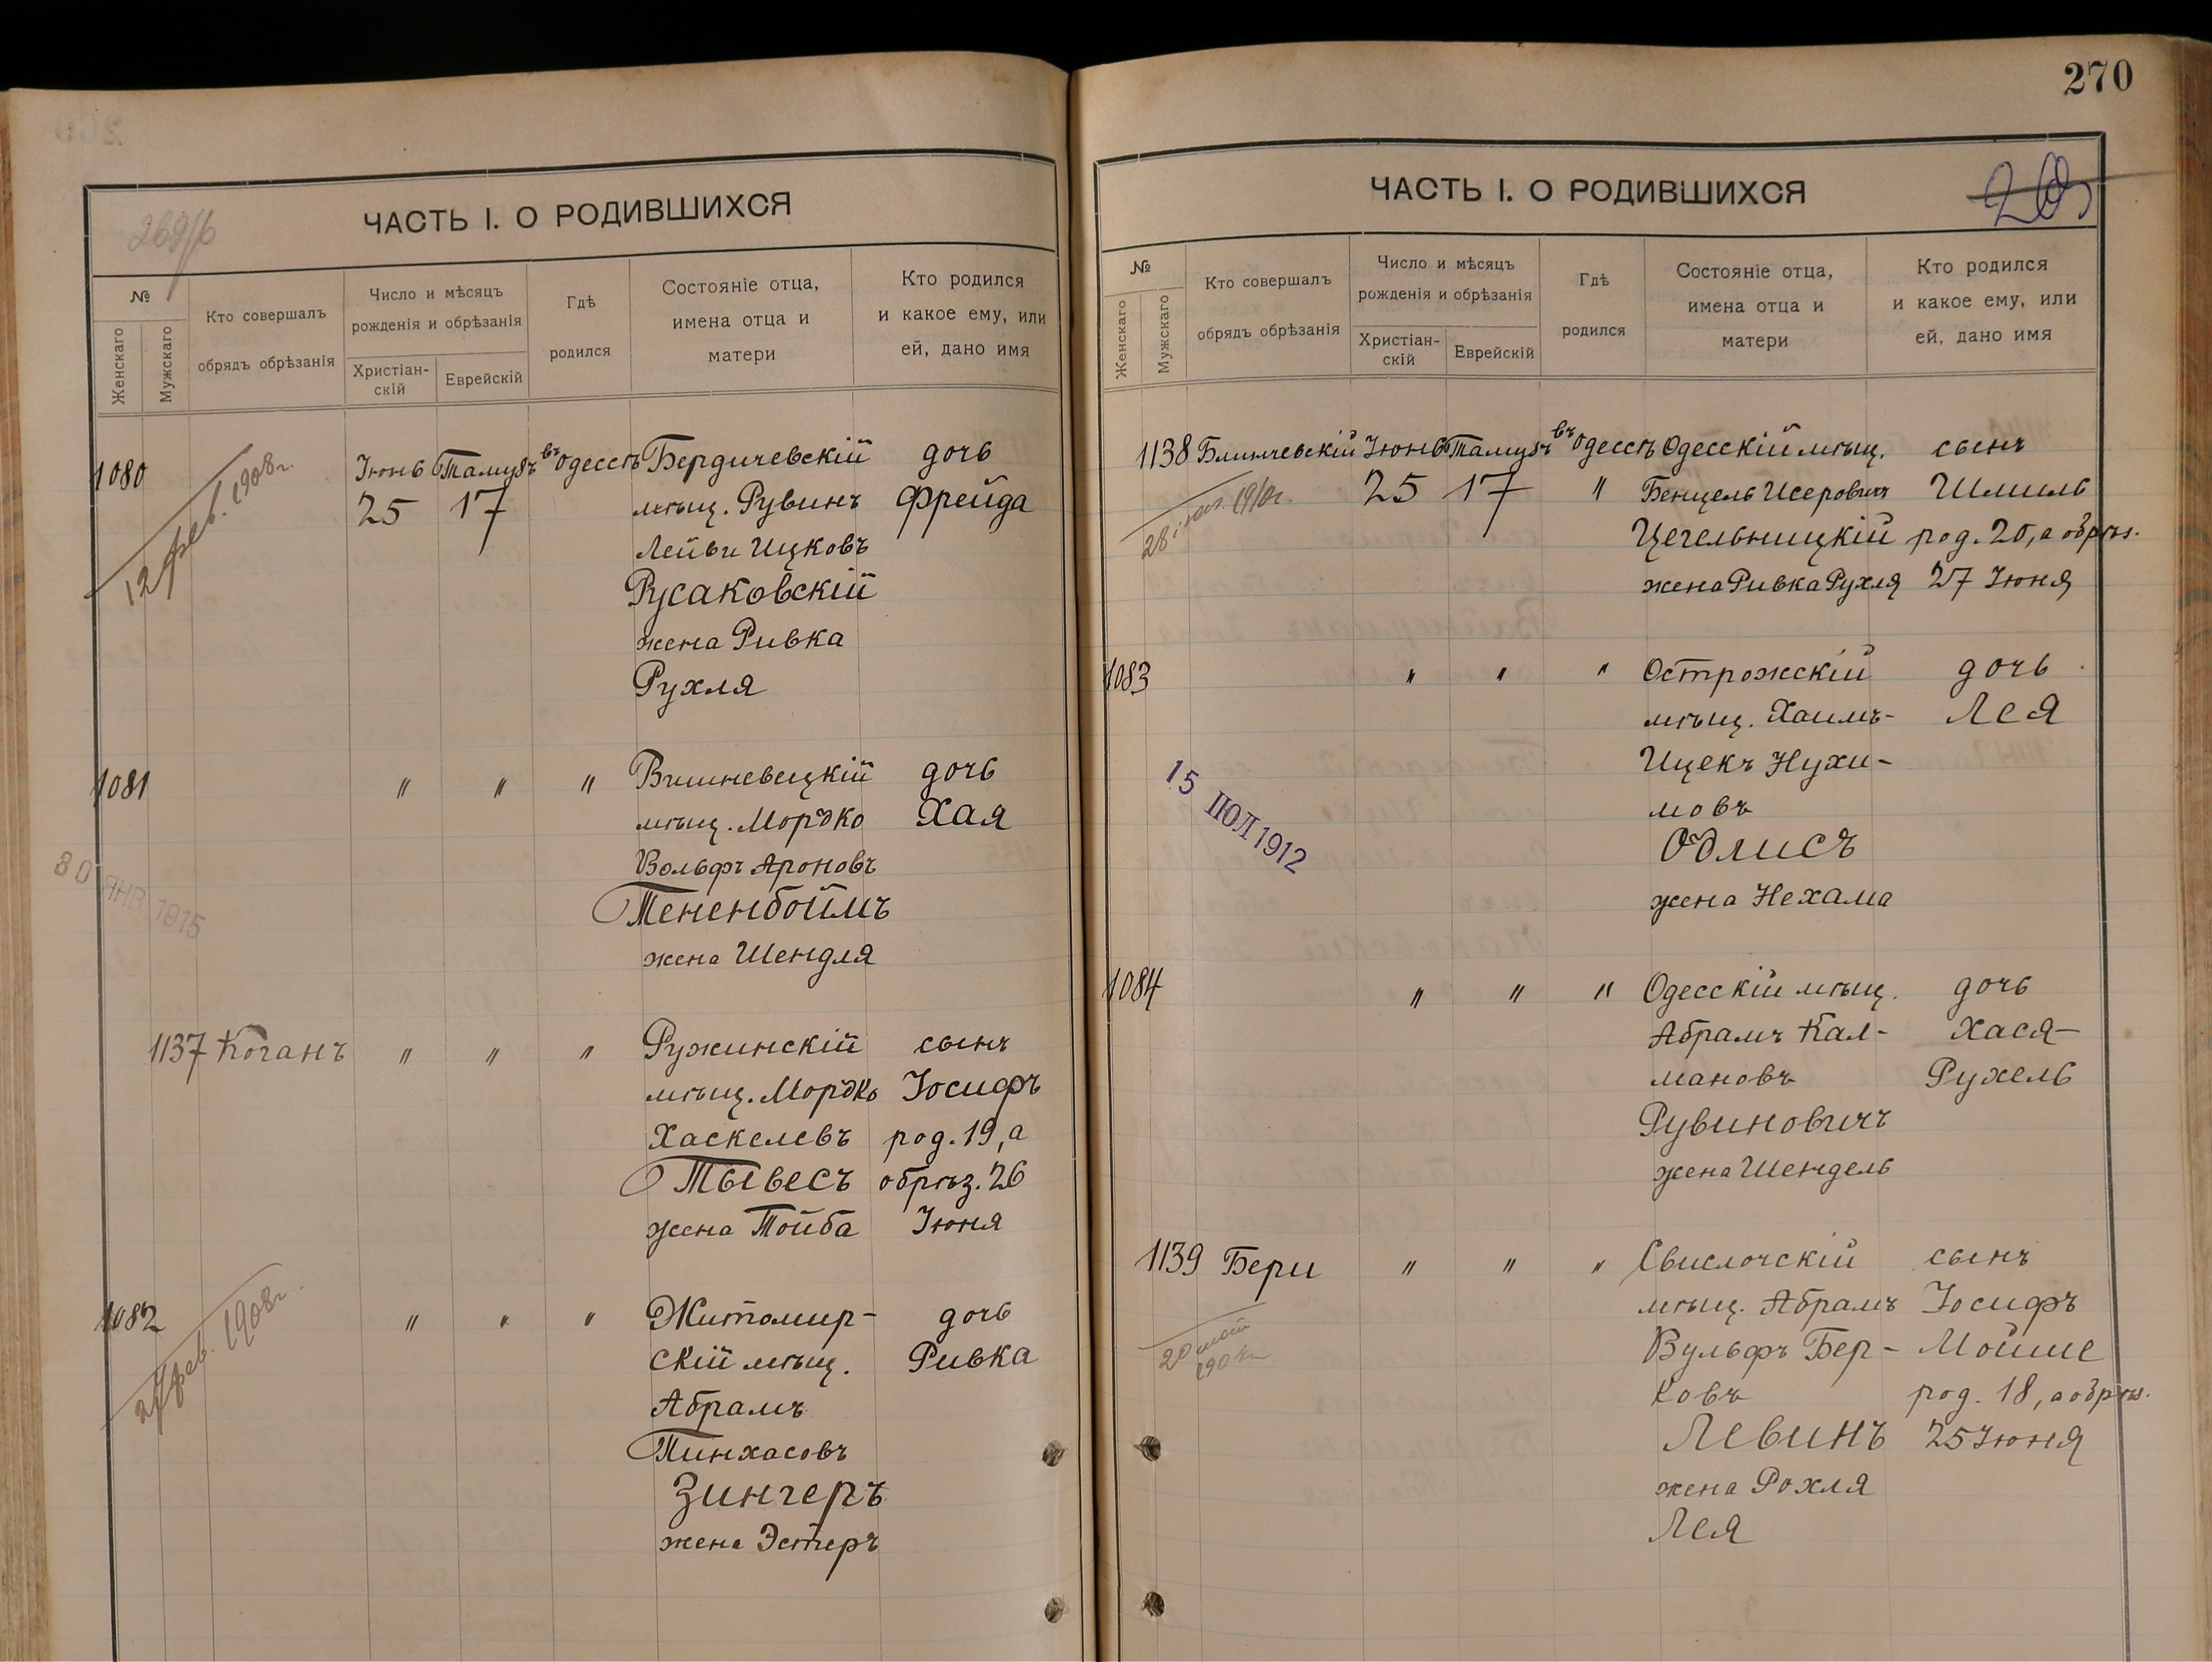 270
ЧАСТЬ I. О РОДИВШИХСЯ
№
Женскаго
Мужскаго
Кто совершалъ
обрядъ обрѣзанія
Число и мѣсяцъ
рожденія и обрѣзанія
Христіан-
скій
Еврейскій
Гдѣ
родился
Состояніе отца,
имена отца и
матери
Кто родился
и какое ему, или
ей, дано имя
1080
12 фев. 1908 г.
Іюнь Тамузъ въ Одессѣ Бердичевскій дочь
25 17 мѣщ. Рувинъ Фрейда
Лейви Ицковъ
Русаковскій
жена Ривка
Рухля
1081 " " " Вишневецкій дочь
мѣщ. Мордко Хая
Вольфъ Ароновъ
Тененбоймъ
жена Шендля
30 ЯНВ. 1915
1137 Коганъ " " " Ружинскій сынъ
мѣщ. Мордко Іосифъ
Хаскелевъ род. 19, а
Тывесъ обрѣз. 26
жена Тойба Іюня
1082 " " " Житомир- дочь
скій мѣщ. Ривка
фев. 1908 г.
Абрамъ
Пинхасовъ
Зингеръ
жена Эстеръ
ЧАСТЬ I. О РОДИВШИХСЯ
№
Женскаго
Мужскаго
Кто совершалъ
обрядъ обрѣзанія
Число и мѣсяцъ
рожденія и обрѣзанія
Христіан-
скій
Еврейскій
Гдѣ
родился
Состояніе отца,
имена отца и
матери
Кто родился
и какое ему, или
ей, дано имя
1138 Блинчевскій Іюнь Тамузъ въ Одессѣ Одесскій мѣщ. сынъ
25 17 " Бенцель Исеровичъ Шмиль
28 1910 г.
Цегельницкій род. 20, а обрѣз.
жена Ривка Рухля 27 Іюня
1083 " " " Острожскій дочь
мѣщ. Хаимъ- Лея
Ицекъ Нухи-
мовъ
Одлисъ
жена Нехама
15 ІЮЛ 1912
1084 " " " Одесскій мѣщ. дочь
Абрамъ Кал- Хася-
мановъ Рухель
Рувиновичъ
жена Шендель
1139 Бери " " " Свислочскій сынъ
мѣщ. Абрамъ Іосифъ
Вульфъ Бер- Мойше
ковъ род. 18, а обрѣз.
Левинъ 25 Іюня
жена Рохля
Лея